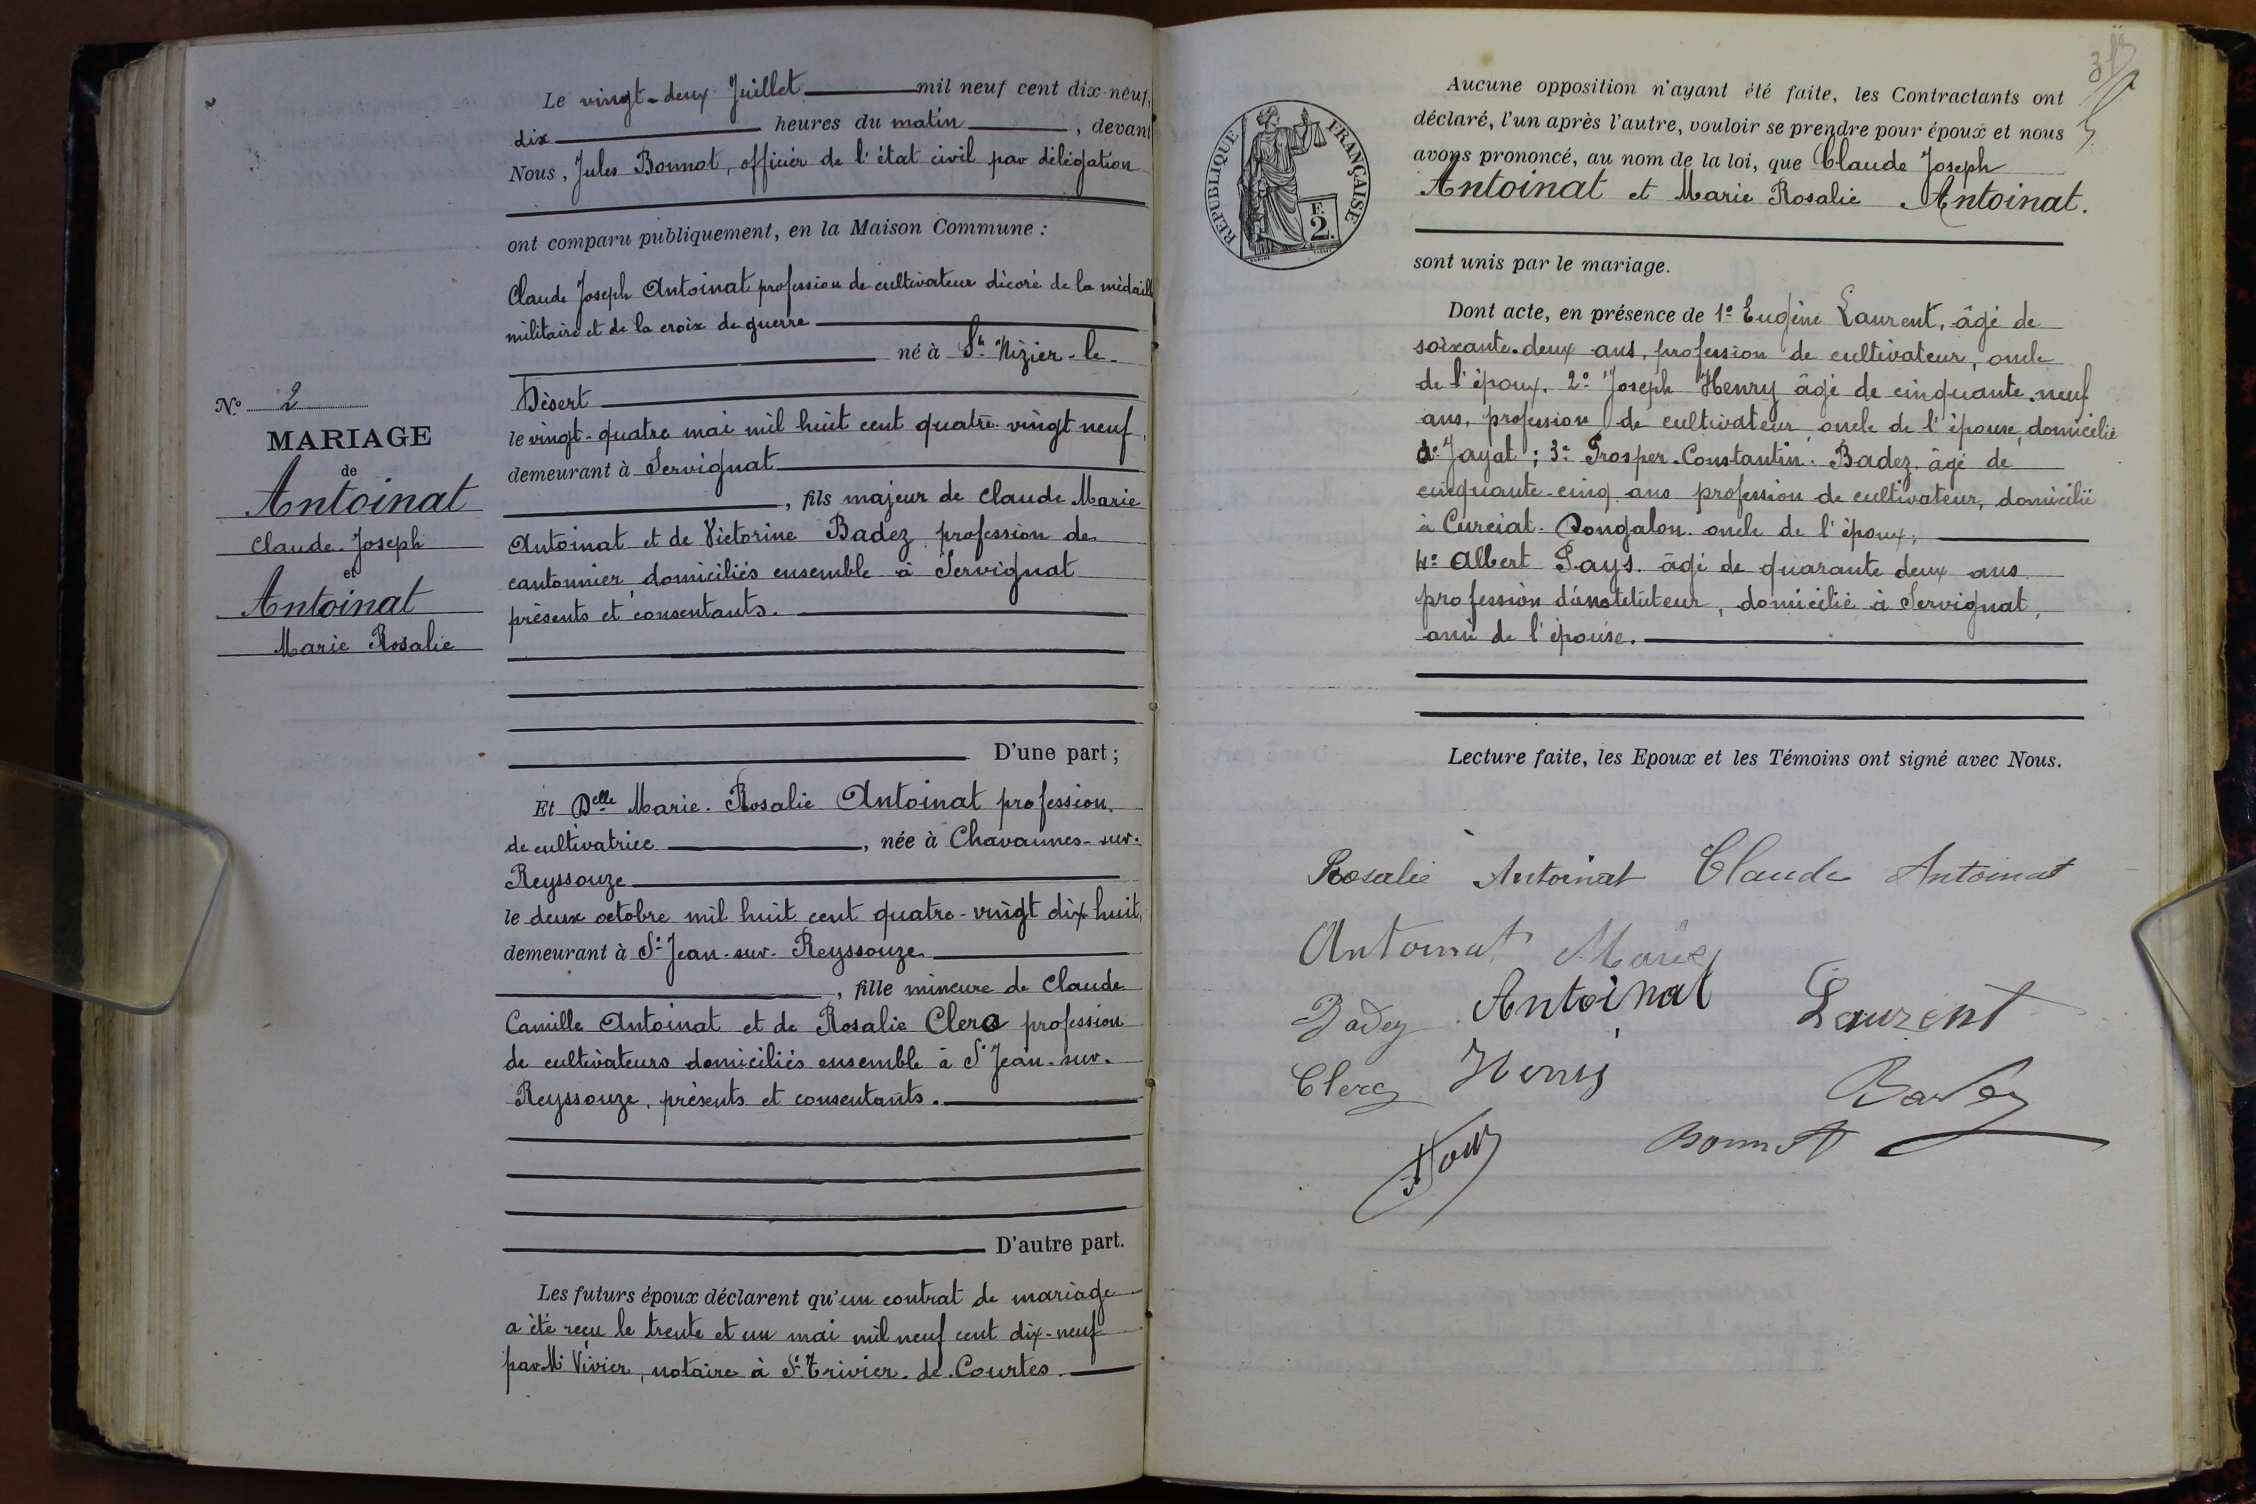 N.º 2
MARIAGE
de
Antoinat
Claude-Joseph
et
Antoinat
Marie Rosalie
Le vingt-deux Juillet mil neuf cent dix-neuf,
dix heures du matin, devant
Nous, Jules Bonnat, officier de l'état civil par délégation
ont comparu publiquement, en la Maison Commune :
Claude Joseph Antoinat profession de cultivateur décoré de la médaille
militaire et de la croix de guerre
né à St Nizier-le-
Désert
le vingt-quatre mai mil huit cent quatre-vingt neuf,
demeurant à Servignat
, fils majeur de Claude Marie
Antoinat et de Victorine Badez profession de
cantonnier, domiciliés ensemble à Servignat
présents et consentants.
D'une part ;
Et Delle Marie-Rosalie Antoinat profession
de cultivatrice, née à Chavannes-sur-
Reyssouze
le deux octobre mil huit cent quatre-vingt dix-huit,
demeurant à St Jean-sur-Reyssouze
, fille mineure de Claude
Camille Antoinat et de Rosalie Clerc profession
de cultivateurs domiciliés ensemble à St Jean-sur-
Reyssouze, présents et consentants.
D'autre part.
Les futurs époux déclarent qu'un contrat de mariage
a été reçu le trente et un mai mil neuf cent dix-neuf
par Me Vivier, notaire à St Trivier-de-Courtes.
REPUBLIQUE FRANÇAISE
F.
2.
Aucune opposition n'ayant été faite, les Contractants ont
déclaré, l'un après l'autre, vouloir se prendre pour époux et nous
avons prononcé, au nom de la loi, que Claude Joseph
Antoinat et Marie Rosalie Antoinat.
sont unis par le mariage.
Dont acte, en présence de 1º Eugène Laurent, âgé de
soixante-deux ans, profession de cultivateur, oncle
de l'époux. 2º Joseph Henry âgé de cinquante-neuf
ans, profession de cultivateur oncle de l'épouse, domicilié
à Jayat ; 3º Prosper-Constantin Badez âgé de
cinquante-cinq ans profession de cultivateur, domicilié
à Curciat-Dongalon oncle de l'époux ;
4º Albert Pays âgé de quarante deux ans
profession d'instituteur, domicilié à Servignat,
ami de l'épouse.
Lecture faite, les Epoux et les Témoins ont signé avec Nous.
Rosalie Antoinat Claude Antoinat
Antoinat Marie
Badez Antoinat Laurent
Clerc Henry
Badez
Bonnat